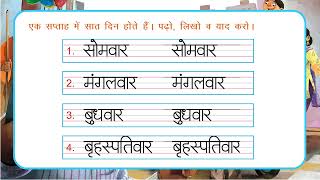 एक सप्ताह में सात दिन होते हैं। पढ़ो, लिखो व याद करो।
1. सोमवार सोमवार
2. मंगलवार मंगलवार
3. बुधवार बुधवार
4. बृहस्पतिवार बृहस्पतिवार